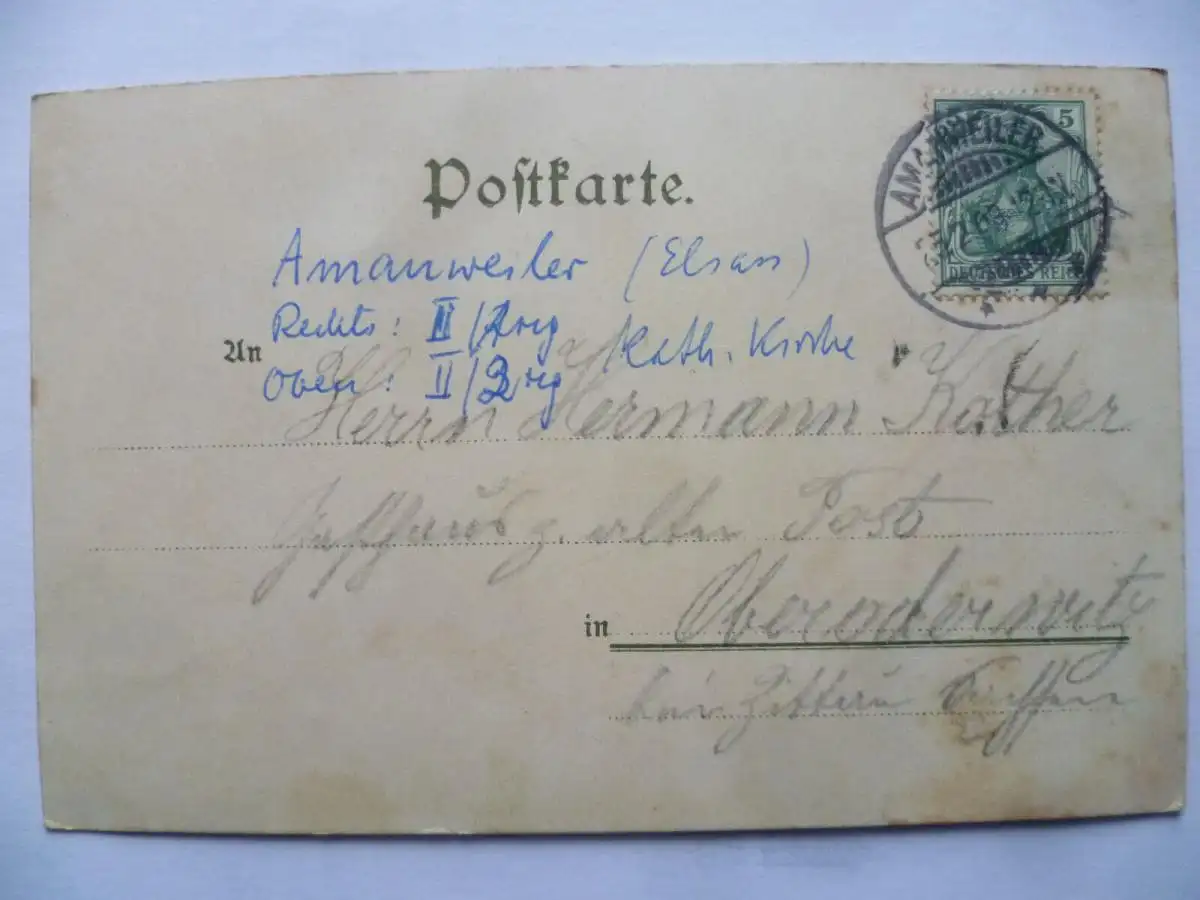 Postkarte.
5
AMANWEILER
DEUTSCHES REICH
Amanweiler (Elsass)
Rechts: III/2rg
Kath. Kirche
Oben: II/2rg
An
Herrn Hermann Köther
Gasthaus z. alten Post
in Oberoderwitz
bei Zittau Sachsen